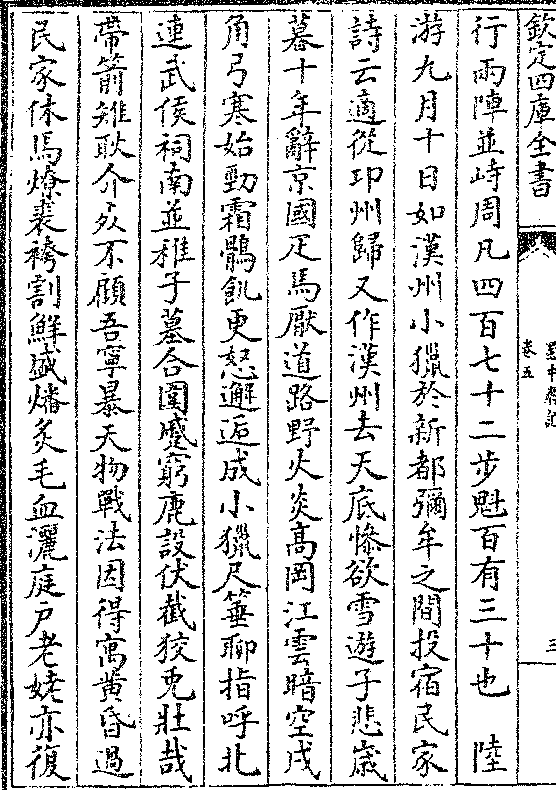 欽定四庫全書
卷五
三
行兩陣並峙周凡四百七十二步魁百有三十也　陸
游九月十日如漢州小獵於新都彌牟之間投宿民家
詩云適從卭州歸又作漢州去天底慘欲雪遊子悲歳
暮十年辭京國疋馬厭道路野火炎髙岡江雲暗空戍
角弓寒始勁霜鶻飢更怒邂逅成小獵尺箠聊指呼北
連武侯祠南並稚子墓合圍蹙窮鹿設伏截狡兎壯哉
帶箭雉耿介死不顧吾寧暴天物戰法因得寓黄昏過
民家休馬燎裘袴割鮮盛燔炙毛血灑庭戸老姥亦復